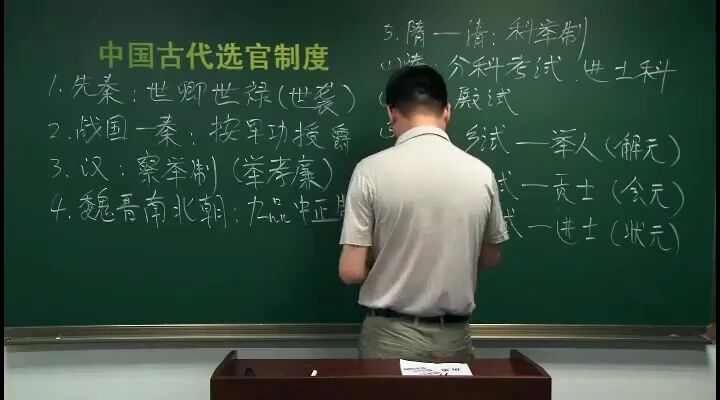 中国古代选官制度
1. 先秦：世卿世禄（世袭）
2. 战国一秦：按军功授爵
3. 汉：察举制（举孝廉）
4. 魏晋南北朝：九品中正
5. 隋一清：科举制
分科考试 进士科
殿试
乡试一举人（解元）
试一贡士（会元）
试一进士（状元）